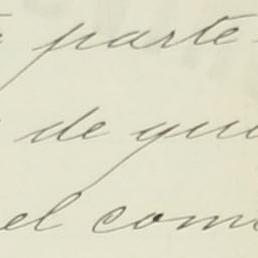 parte
de que
el com